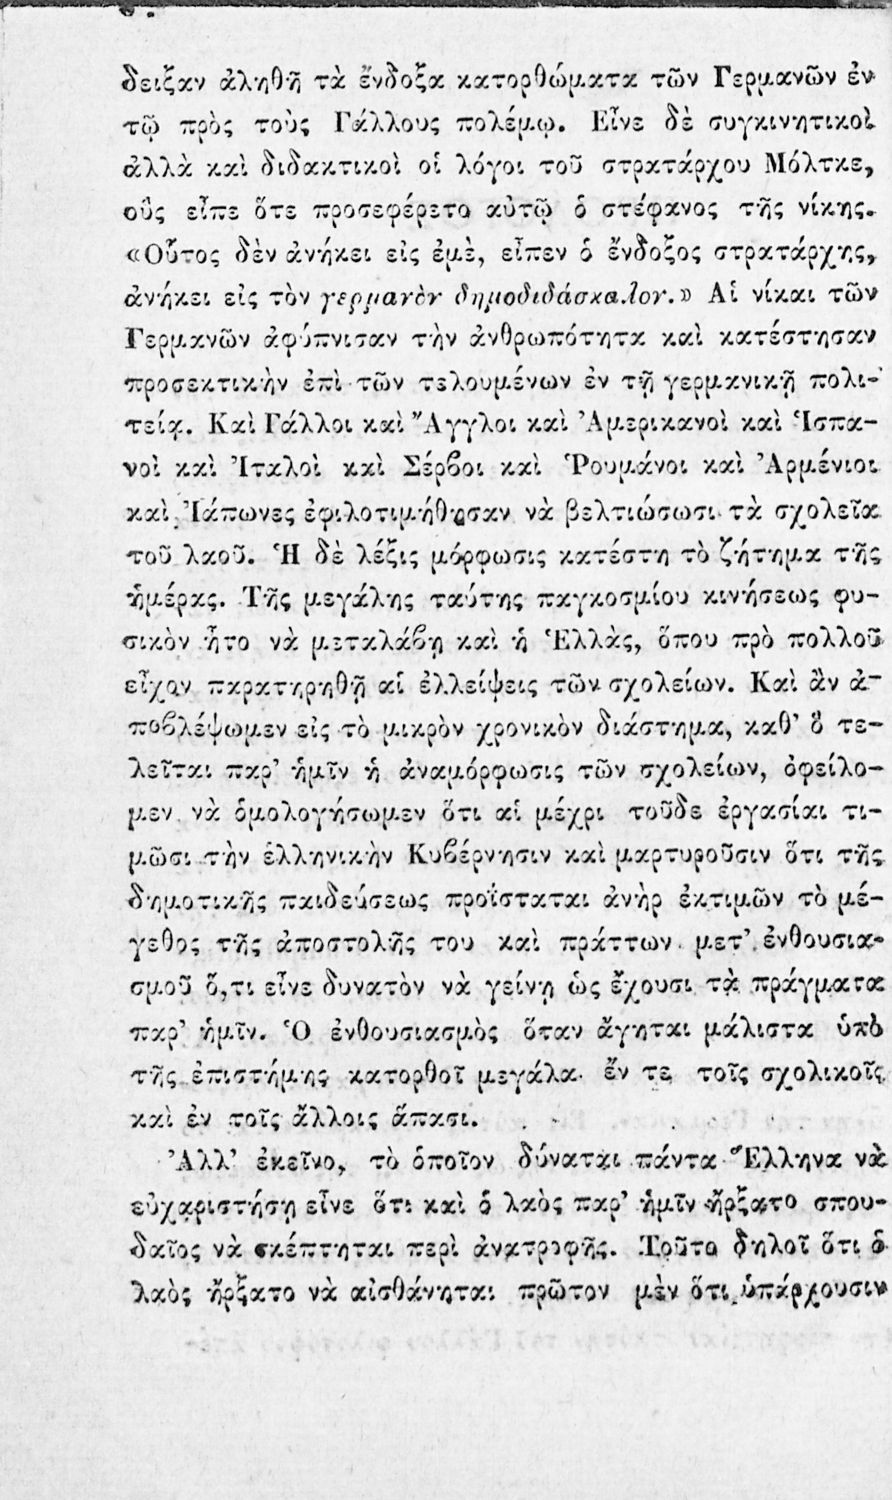 δειξαν ἀληθῆ τὰ ἔνδοξα κατορθώματα τῶν Γερμανῶν ἐν
τῷ πρὸς τοὺς Γάλλους πολέμῳ. Εἶνε δὲ συγκινητικοὶ
ἀλλὰ καὶ διδακτικοὶ οἱ λόγοι τοῦ στρατάρχου Μόλτκε,
οὓς εἶπε ὅτε προσεφέρετο αὐτῷ ὁ στέφανος τῆς νίκης.
«Οὗτος δὲν ἀνήκει εἰς ἐμὲ, εἶπεν ὁ ἔνδοξος στρατάρχης,
ἀνήκει εἰς τὸν γερμανὸν δημοδιδάσκαλον.» Αἱ νίκαι τῶν
Γερμανῶν ἀφύπνισαν τὴν ἀνθρωπότητα καὶ κατέστησαν
προσεκτικὴν ἐπὶ τῶν τελουμένων ἐν τῇ γερμανικῇ πολι-
τείᾳ. Καὶ Γάλλοι καὶ Ἄγγλοι καὶ Ἀμερικανοὶ καὶ Ἱσπα-
νοὶ καὶ Ἰταλοὶ καὶ Σέρβοι καὶ Ῥουμάνοι καὶ Ἀρμένιοι
καὶ Ἰάπωνες ἐφιλοτιμήθησαν νὰ βελτιώσωσι τὰ σχολεῖα
τοῦ λαοῦ. Ἡ δὲ λέξις μόρφωσις κατέστη τὸ ζήτημα τῆς
ἡμέρας. Τῆς μεγάλης ταύτης παγκοσμίου κινήσεως φυ-
σικὸν ἦτο νὰ μεταλάβῃ καὶ ἡ Ἑλλὰς, ὅπου πρὸ πολλοῦ
εἶχον παρατηρηθῇ αἱ ἐλλείψεις τῶν σχολείων. Καὶ ἂν ἀ-
ποβλέψωμεν εἰς τὸ μικρὸν χρονικὸν διάστημα, καθ’ ὃ τε-
λεῖται παρ’ ἡμῖν ἡ ἀναμόρφωσις τῶν σχολείων, ὀφείλο-
μεν νὰ ὁμολογήσωμεν ὅτι αἱ μέχρι τοῦδε ἐργασίαι τι-
μῶσι τὴν ἑλληνικὴν Κυβέρνησιν καὶ μαρτυροῦσιν ὅτι τῆς
δημοτικῆς παιδεύσεως προΐσταται ἀνὴρ ἐκτιμῶν τὸ μέ-
γεθος τῆς ἀποστολῆς του καὶ πράττων μετ’ ἐνθουσια-
σμοῦ ὅ,τι εἶνε δυνατὸν νὰ γείνῃ ὡς ἔχουσι τὰ πράγματα
παρ’ ἡμῖν. Ὁ ἐνθουσιασμὸς ὅταν ἄγηται μάλιστα ὑπὸ
τῆς ἐπιστήμης κατορθοῖ μεγάλα ἔν τε τοῖς σχολικοῖς
καὶ ἐν τοῖς ἄλλοις ἅπασι.
Ἀλλ’ ἐκεῖνο, τὸ ὁποῖον δύναται πάντα Ἕλληνα νὰ
εὐχαριστήσῃ εἶνε ὅτι καὶ ὁ λαὸς παρ’ ἡμῖν ἤρξατο σπου-
δαῖος νὰ σκέπτηται περὶ ἀνατροφῆς. Τοῦτο δηλοῖ ὅτι ὁ
λαὸς ἤρξατο νὰ αἰσθάνηται πρῶτον μὲν ὅτι ὑπάρχουσιν